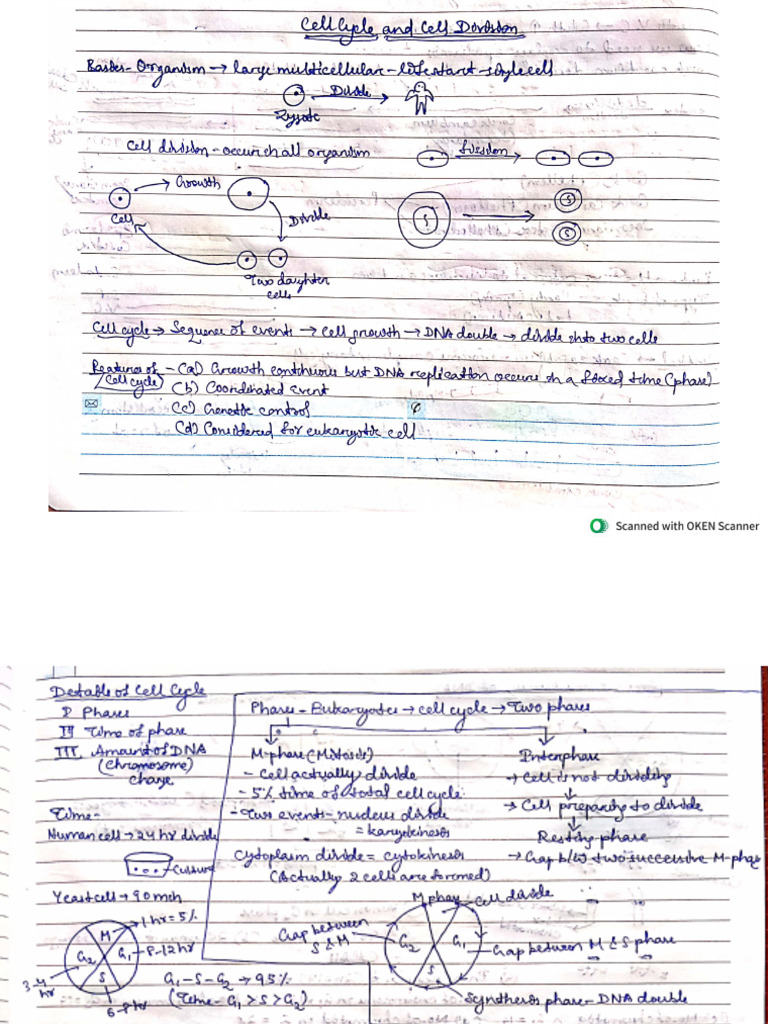 Cell Cycle and Cell Division
Basics - Organism → large multicellular - life start - single cell
Divide
Zygote
Cell division - occur in all organism
fission
Growth
Cell
Divide
S
S
S
Two daughter
cells
Cell cycle → Sequence of event → cell growth → DNA double → divide into two cells
Features of - (a) Growth continuous but DNA replication occurs in a fixed time (phase)
(Cell cycle)
(b) Coordinated event
(c) Genetic control
(d) Considered for eukaryotic cell
Scanned with OKEN Scanner
Details of Cell Cycle
I Phases
II Time of phase
III Amount of DNA
(Chromosome)
change
Time -
Human cell → 24 hr divide
Culture
Yeast cell → 90 min
M
1 hr = 5%
G1
8-12 hr
G2
3-4
hr
S
6-8 hr
G1-S-G2 → 95%
(Time - G1 > S > G2)
Phases - Eukaryotes → cell cycle → Two phases
M-phase (Mitosis)
- Cell actually divide
- 5% time of total cell cycle
- Two events - nucleus divide
= karyokinesis
Cytoplasm divide = cytokinesis
(Actually 2 cells are formed)
Interphase
→ Cell is not dividing
→ Cell preparing to divide
Resting phase
→ Gap b/w two successive M-phase
M phase - cell divide
Gap between
S & M
G2
G1
Gap between M & S phase
S
Synthesis phase - DNA double